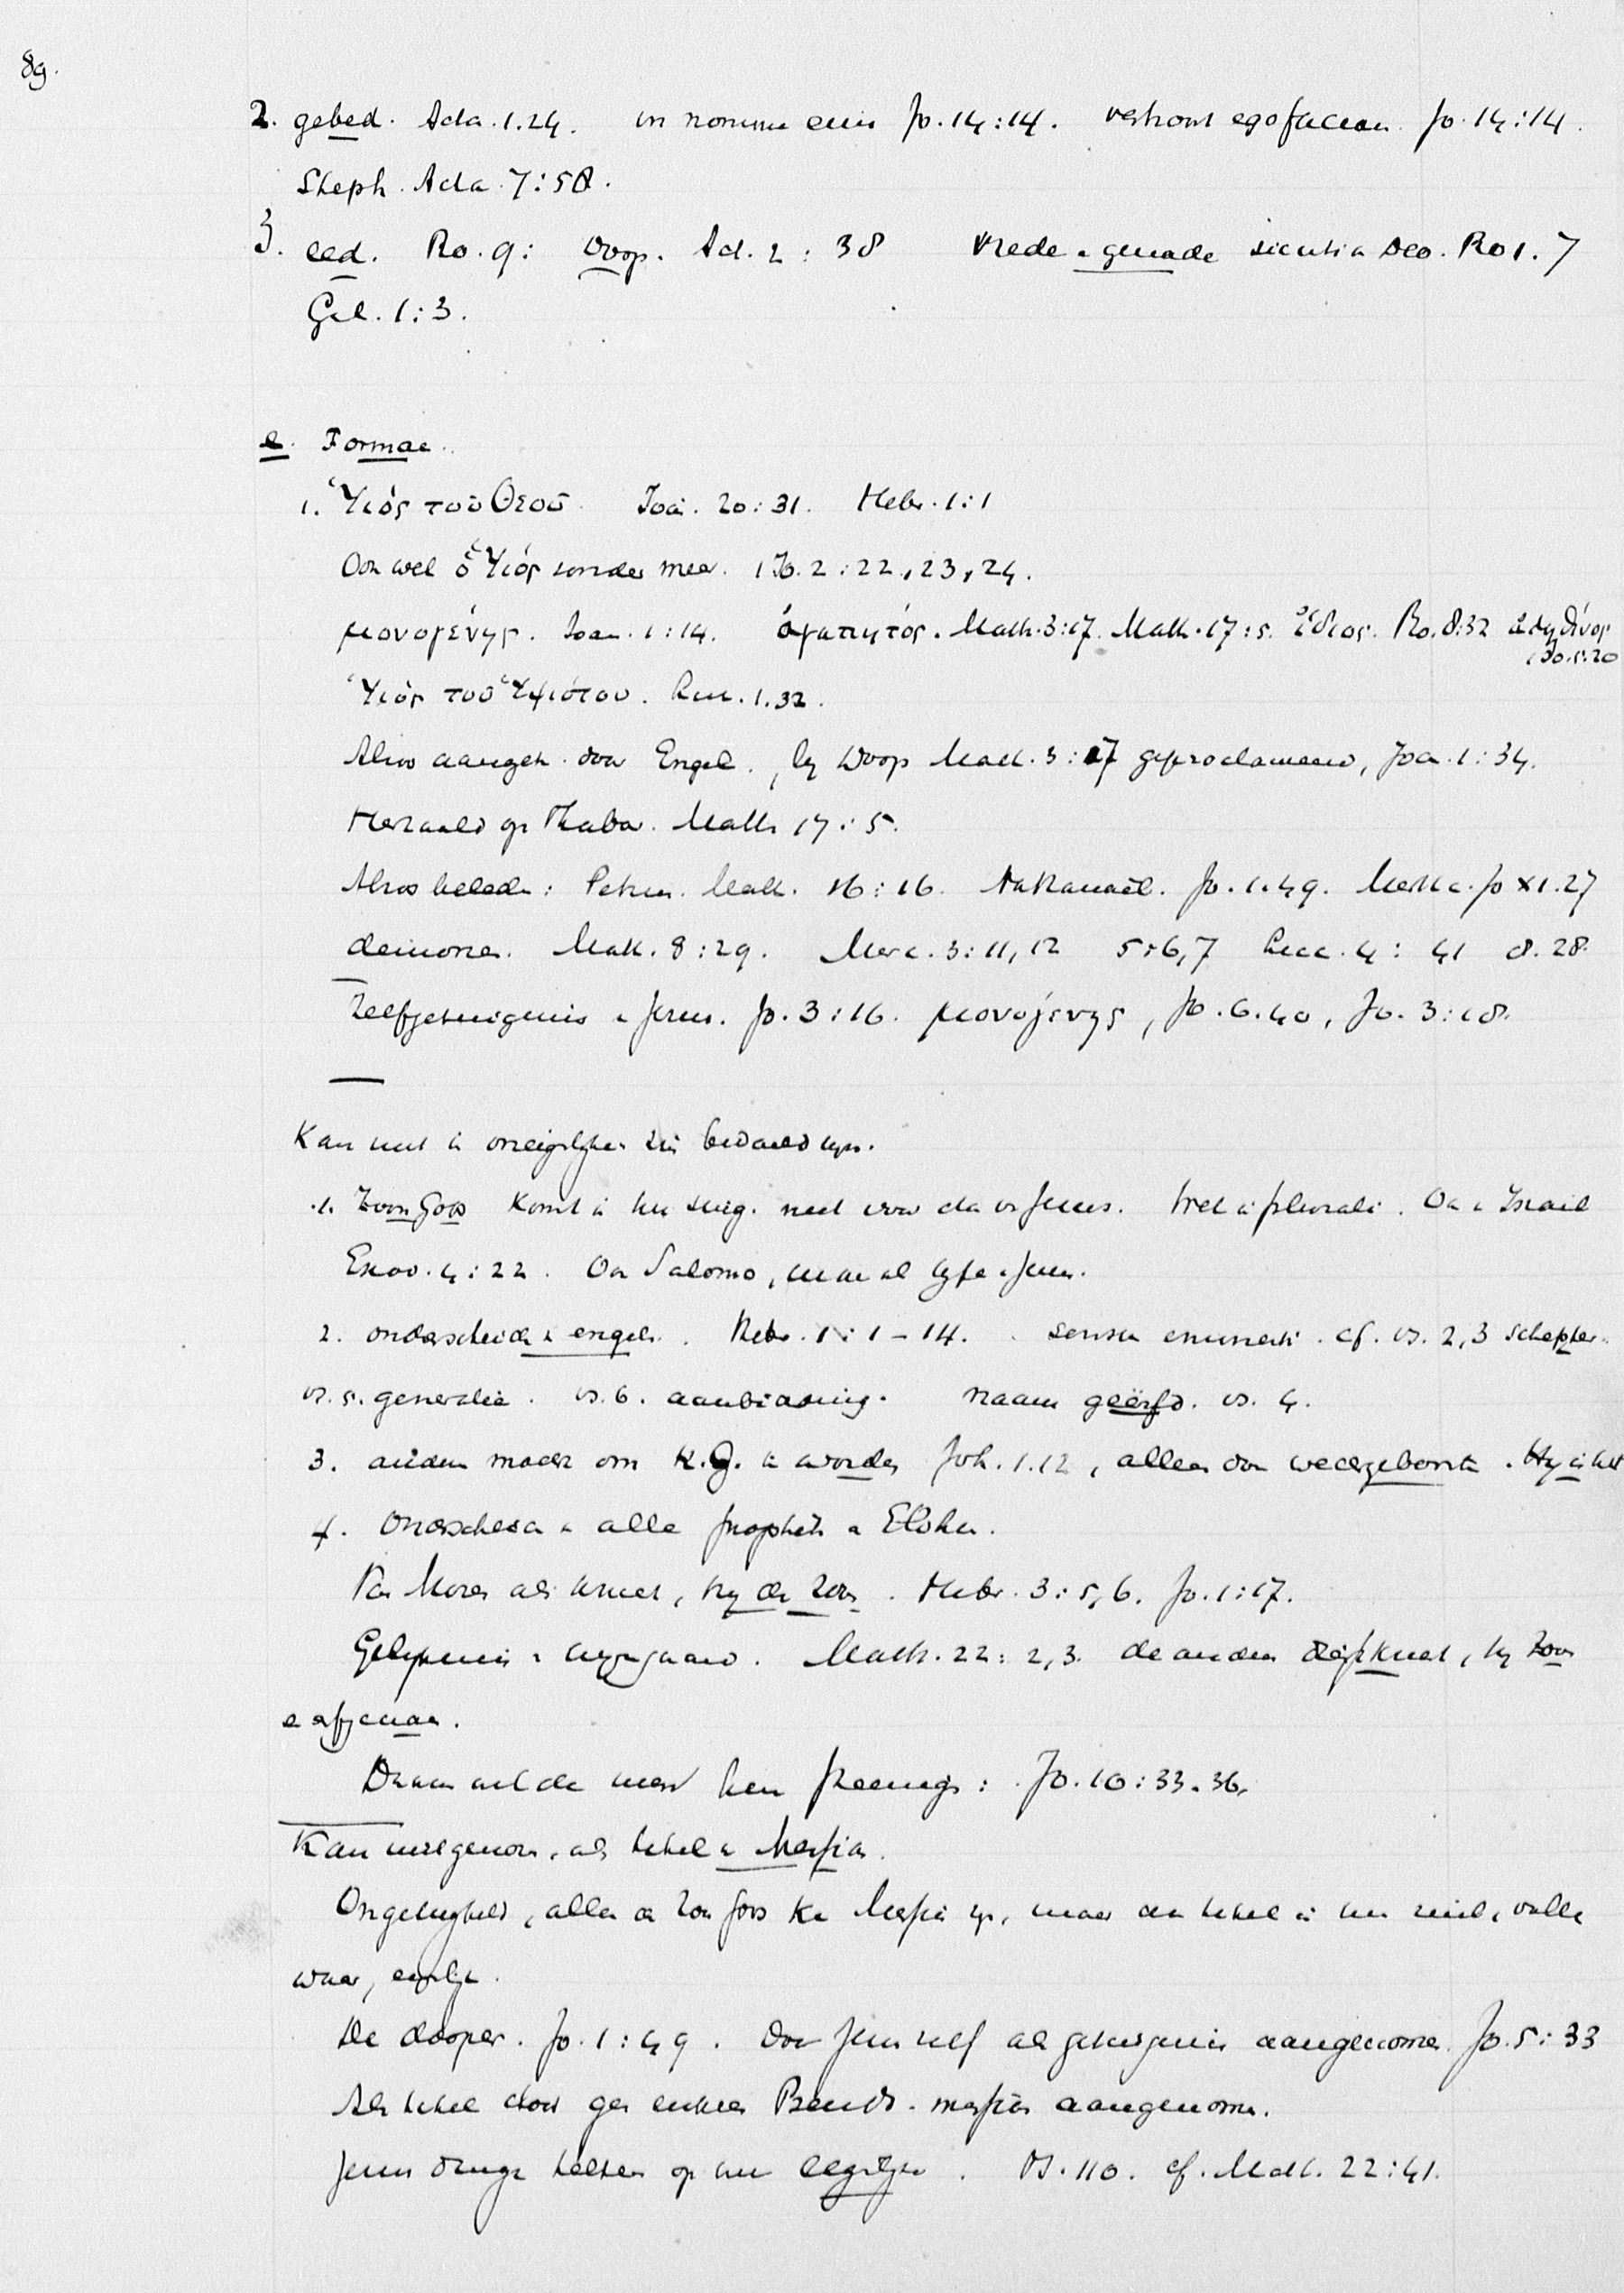 89.
2. gebed. Acta. 1.24. in nomine eius Jo. 14:14. ego faciam. Jo. 14:14.
Steph. Acta. 7:58.
3. eed. Ro. 9: Doop. Act. 2:38 Vrede & genade sicuti a Deo. Ro 1.7
Gal. 1:3.
e. Formae.
1. Ὑιός τοῦ Θεοῦ. Joa. 20:31. Hebr. 1:1
Ook wel ὁ Ὑιός zonder meer. 1 Jo. 2:22,23,24.
μονογένης. Joan. 1:14. ἀγαπητός. Math. 3:17. Math. 17:5. ἴδιος. Ro. 8:32 ἀληθίνος
1 Jo. 5:20
Ὑιός τοῦ Ὑψιστου. Luc. 1.32.
Alzoo aangek. door Engel, bij Doop Math. 3:17 geproclameerd, Joa. 1:34.
Herhaald op Thabor. Math 17:5.
Alzoo beleden: Petrus. Math. 16:16. Nathanaël. Jo. 1.49. Martha. Jo XI.27
demones. Math. 8:29. Marc. 3:11,12 5:6,7 Luc. 4:41 8.28.
Zelfgetuigenis v Jezus. Jo. 3:16. μονογένης, Jo. 6.40, Jo. 3:18.
Kan niet in oneigelijken zin bedoeld zijn.
1. Zoon Gods komt in het sing. niet voor dan v Jezus. Wel in plurali. Ook v Israël
Exod. 4:22. Ook Salomo, maar als type v Jezus.
2. onderscheiden v engelen. Hebr. 1:1-14. sensu eminenti. cf. vs. 2,3 Schepper.
vs. 5. generatie. vs. 6. aanbidding. naam geërfd. vs. 4.
3. anderen macht om K.G. te worden Joh. 1.12, alleen door wedergeboorte. Hij is het
4. Onderscheiden v alle propheten
Van Mozes als knecht, hij de Zoon. Hebr. 3:5,6. Jo. 1:17.
Gelijkenis v wijngaard. Math. 22:2,3. de anderen knecht, hij Zoon
e erfgenaam.
Daarom wilde men hem steenigen: Jo. 10:33-36.
Kan niet genomen als titel v Messias.
Ongetwijfeld, alleen de Zoon Gods kan Messias zijn, maar den titel is
waar, eigelijk.
De dooper. Jo. 1:49. Door Jezus zelf als getuigenis aangenomen. Jo. 5:33
Als titel door geen enkelen Pseudo-messias aangenomen.
Jezus op het eigelijke. Ps. 110. cf. Math. 22:41.